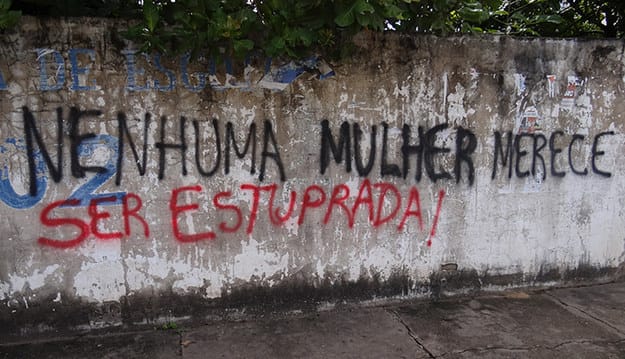 NENHUMA MULHER MERECE
SER ESTUPRADA!